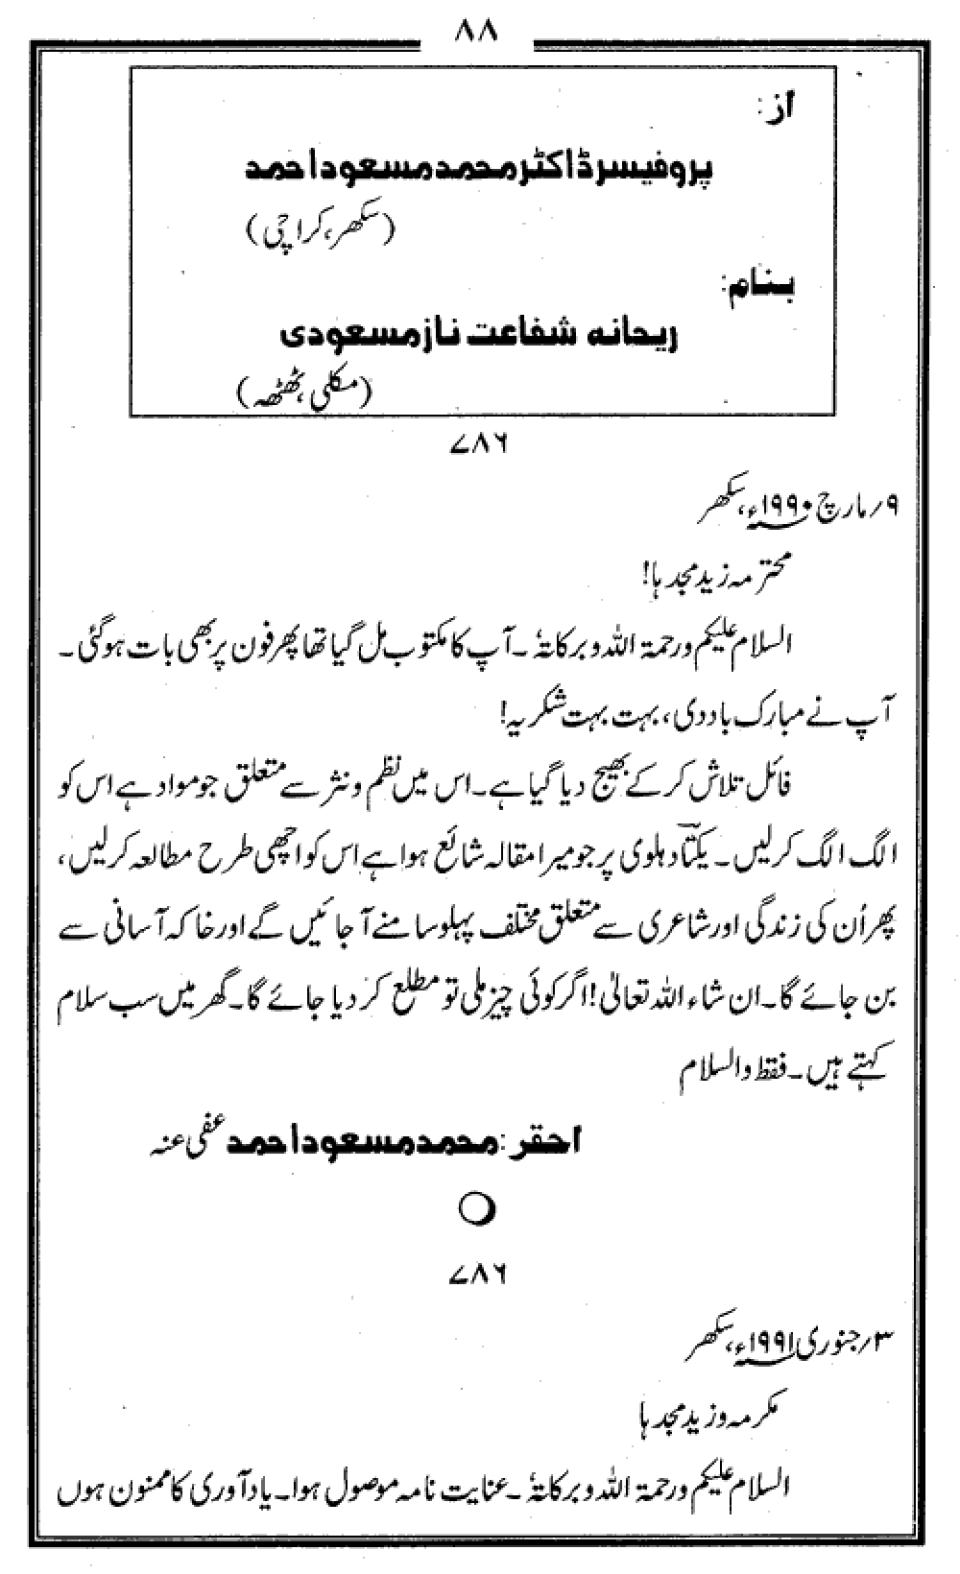 ۸۸
از:
پروفیسر ڈاکٹر محمد مسعود احمد
(سکھر، کراچی)
بنام:
ریحانہ شفاعت ناز مسعودی
(مکلی، ٹھٹھہ)
۷۸۶
۹/مارچ ۱۹۹۰ء، سکھر
محترمہ زید مجدہا!
السلام علیکم ورحمۃ اللہ وبرکاتہٗ۔ آپ کا مکتوب مل گیا تھا پھر فون پر بھی بات ہوگئی۔
آپ نے مبارک باد دی، بہت بہت شکریہ!
فائل تلاش کر کے بھیج دیا گیا ہے۔ اس میں نظم و نثر سے متعلق جو مواد ہے اس کو
الگ الگ کرلیں۔ یکتاؔ دہلوی پر جو میرا مقالہ شائع ہوا ہے اس کو اچھی طرح مطالعہ کرلیں،
پھر اُن کی زندگی اور شاعری سے متعلق مختلف پہلو سامنے آجائیں گے اور خاکہ آسانی سے
بن جائے گا۔ ان شاء اللہ تعالیٰ! اگر کوئی چیز ملی تو مطلع کردیا جائے گا۔ گھر میں سب سلام
کہتے ہیں۔ فقط والسلام
احقر: محمد مسعود احمد عفی عنہ
۷۸۶
۳/جنوری ۱۹۹۱ء، سکھر
مکرمہ و زید مجدہا
السلام علیکم ورحمۃ اللہ وبرکاتہٗ۔ عنایت نامہ موصول ہوا۔ یاد آوری کا ممنون ہوں